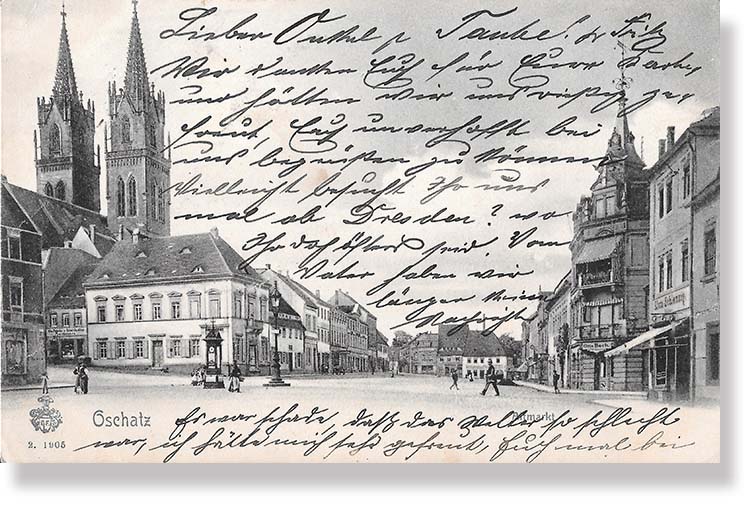 Lieber Onkel u Tante! u Fritz
Wir danken Euch für Eure Karte,
und hätten wir uns riesig ge,
freut, Euch unverhofft bei
uns begrüßen zu können
Vielleicht besucht Ihr uns
mal ab Dresden? wo
Ihr doch öfters seid. Vom
Vater haben wir
länger keine
Nachricht
Oschatz
Altmarkt
2. 1905
Es war schade, daß das Wetter so schlecht
war, ich hätte mich sehr gefreut, Euch mal bei